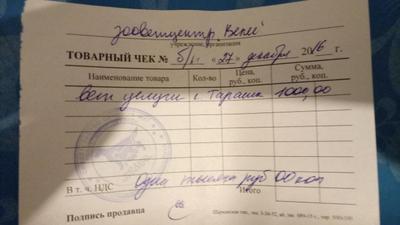 зооветцентр "Вели"
учреждение, организация
ТОВАРНЫЙ ЧЕК № б/н « 27 » декабря 2016 г.
Наименование товара Кол-во Цена, руб., коп. Сумма, руб., коп.
вет услуги г. Тараша 1000,00
В т. ч. НДС Одна тысяча руб 00 коп
Итого
Подпись продавца